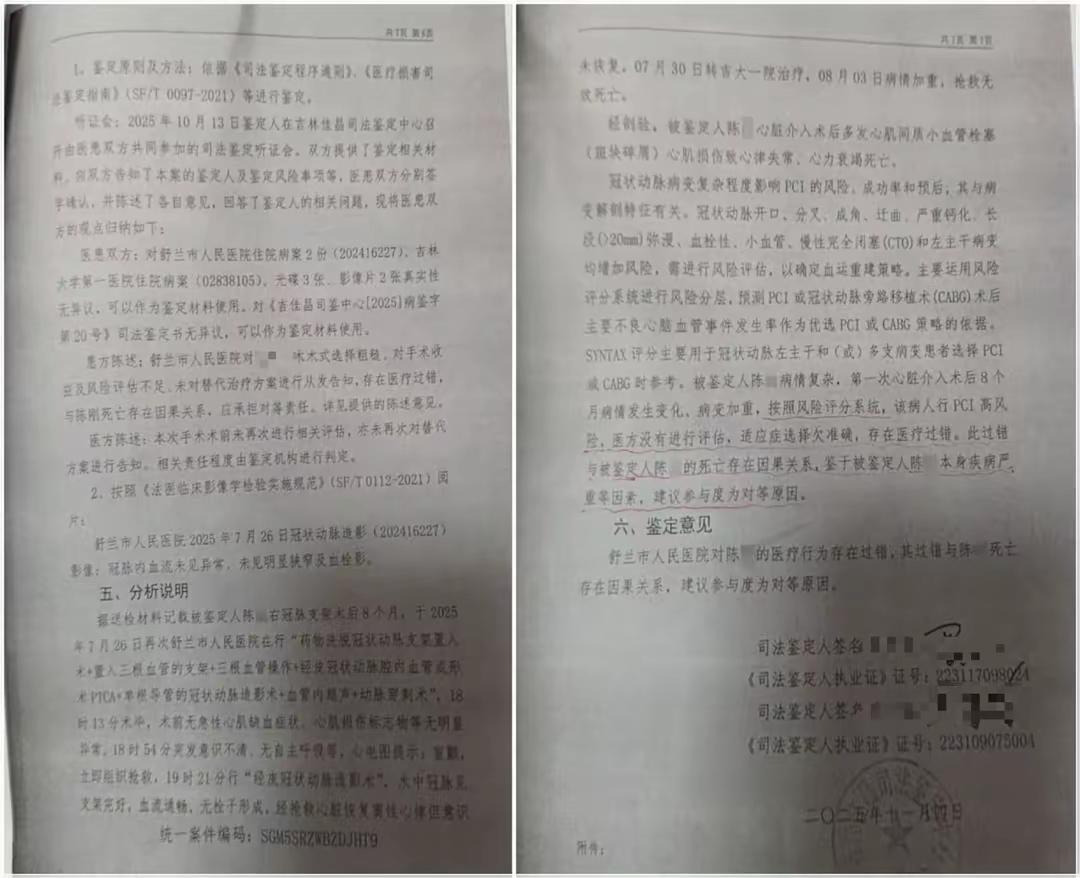 共7页 第6页
1、鉴定原则及方法：依据《司法鉴定程序通则》、《医疗损害司
法鉴定指南》（SF/T 0097-2021）等进行鉴定。
听证会：2025年10月13日鉴定人在吉林佳昌司法鉴定中心召
开由医患双方共同参加的司法鉴定听证会。双方提供了鉴定相关材
料、向双方告知了本案的鉴定人及鉴定风险事项等，医患双方分别签
字确认，并陈述了各自意见，回答了鉴定人的相关问题，现将医患双
方的观点归纳如下：
医患双方：对舒兰市人民医院住院病案2份（202416227）、吉林
大学第一医院住院病案（02838105）、光碟3张、影像片2张真实性
无异议，可以作为鉴定材料使用。对《吉佳昌司鉴中心[2025]病鉴字
第20号》司法鉴定书无异议，可以作为鉴定材料使用。
患方陈述：舒兰市人民医院对 术式选择粗糙，对手术收
益及风险评估不足、未对替代治疗方案进行告知，存在医疗过错，
与陈刚死亡存在因果关系，应承担对等责任。详见提供的陈述意见。
医方陈述：本次手术术前未再次进行相关评估，亦未再次对替代
方案进行告知。相关责任程度由鉴定机构进行判定。
2、按照《法医临床影像学检验实施规范》（SF/T 0112-2021）阅
片：
舒兰市人民医院2025年7月26日冠状动脉造影（202416227）
影像：冠脉内血流未见异常，未见明显狭窄及血栓影。
五、分析说明
据送检材料记载被鉴定人陈 右冠脉支架术后8个月，于2025
年7月26日再次舒兰市人民医院在行“药物洗脱冠状动脉支架置入
术+置入三根血管的支架+三根血管操作+经皮冠状动脉腔内血管成形
术PTCA+单根导管的冠状动脉造影术+血管内超声+动脉穿刺术”，18
时13分术毕，术前无急性心肌缺血症状、心肌损伤标志物等无明显
异常，18时54分突发意识不清、无自主呼吸等，心电图提示：室颤，
立即组织抢救，19时21分行“经皮冠状动脉造影术”，术中冠脉见
支架完好，血流通畅，无栓子形成，经抢救心脏恢复窦性心律但意识
统一案件编码：SGM5SRZWBZDJHT9
共7页 第7页
未恢复，07月30日转吉大一院治疗，08月03日病情加重，抢救无
效死亡。
经剖验，被鉴定人陈 心脏介入术后多发心肌间质小血管栓塞
（斑块碎屑）心肌损伤致心律失常、心力衰竭死亡。
冠状动脉病变复杂程度影响PCI的风险、成功率和预后，其与病
变解剖特征有关。冠状动脉开口、分叉、成角、迂曲、严重钙化、长
段(>20mm)弥漫、血栓性、小血管、慢性完全闭塞(CTO)和左主干病变
均增加风险，需进行风险评估，以确定血运重建策略。主要运用风险
评分系统进行风险分层，预测PCI或冠状动脉旁路移植术(CABG)术后
主要不良心脑血管事件发生率作为优选PCI或CABG策略的依据。
SYNTAX评分主要用于冠状动脉左主干和（或）多支病变患者选择PCI
或CABG时参考。被鉴定人陈 病情复杂，第一次心脏介入术后8个
月病情发生变化、病变加重，按照风险评分系统，该病人行PCI高风
险，医方没有进行评估，适应症选择欠准确，存在医疗过错。此过错
与被鉴定人陈 的死亡存在因果关系，鉴于被鉴定人陈 本身疾病严
重等因素，建议参与度为对等原因。
六、鉴定意见
舒兰市人民医院对陈 的医疗行为存在过错，其过错与陈 死亡
存在因果关系，建议参与度为对等原因。
司法鉴定人签名
《司法鉴定人执业证》证号：223117098024
司法鉴定人签名
《司法鉴定人执业证》证号：223109075004
二〇二五年十一月四日
附件：